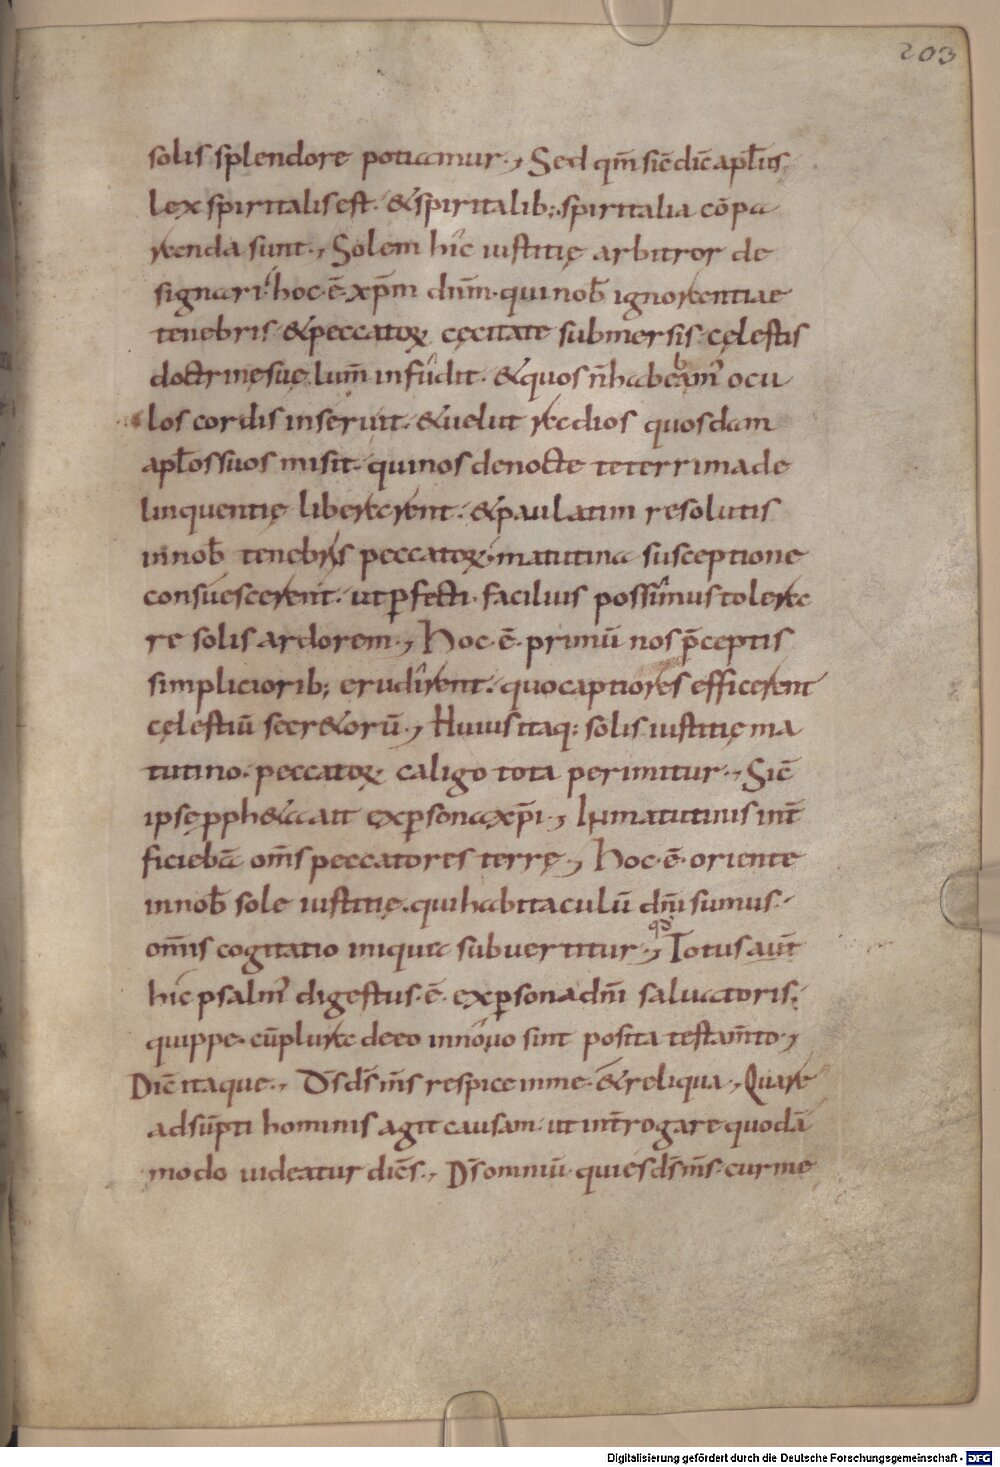 203
solis splendore potiamur·, Sed qm̄ sic̄ dic̄ apl̄us
lex spiritalis est· & spiritalib;· spiritalia cōpa
randa sunt·, Solem hîc iustitię arbitror de
signari· hoc·ē· xp̄m dnm̄· qui nob̄ ignorantiae
tenebris· & peccatoꝝ cęcitate submersis· cęlestis
doctrinę suę lum̄ infûdit· & quos n̄ habebam' ocu
los cordis inseruit· & uelut radios quosdam
apl̄os suos misit· qui nos de nocte teterrima de
linquentię liberarent· & paulatim resolutis
in nob̄ tenebris peccatoꝝ· matutina susceptione
consuescerent· ut ꝑfecti· facilius possîmus tolera
re solis ardorem·, Hoc·ē· primū nos p̄ceptis
simpliciorib; erudîrent· quo captiores efficerent
cęlestiū secr&orū·, Huius itaq: solis iustitię ma
tutino· peccatoꝝ caligo tota perimitur·, Sic̄
ipse pph&a ait ex ꝑsona xp̄i·, In matutinis int̄
ficiebā om̄s peccatores terrę·, Hoc·ē· oriente
in nob̄ sole iustitię· qui habitaculū dn̄i sumus·
om̄is cogitatio iniqua subuertitur·, Totus aut̄
qd̄
hic psalm' digestus·ē· ex ꝑsona dn̄i saluatoris;
quippe· cū plura de eo in nôuo sint posita testam̄to·,
Dic̄ itaque·, Ds̄ ds̄ ms̄ respice in me· & reliqua·, Quare
adsūpti hominis agit causam· ut int̄rogare quodā
modo uideatur dic̄s·, Ds̄ omniū· qui es ds̄ ms̄· cur me
Digitalisierung gefördert durch die Deutsche Forschungsgemeinschaft - DFG